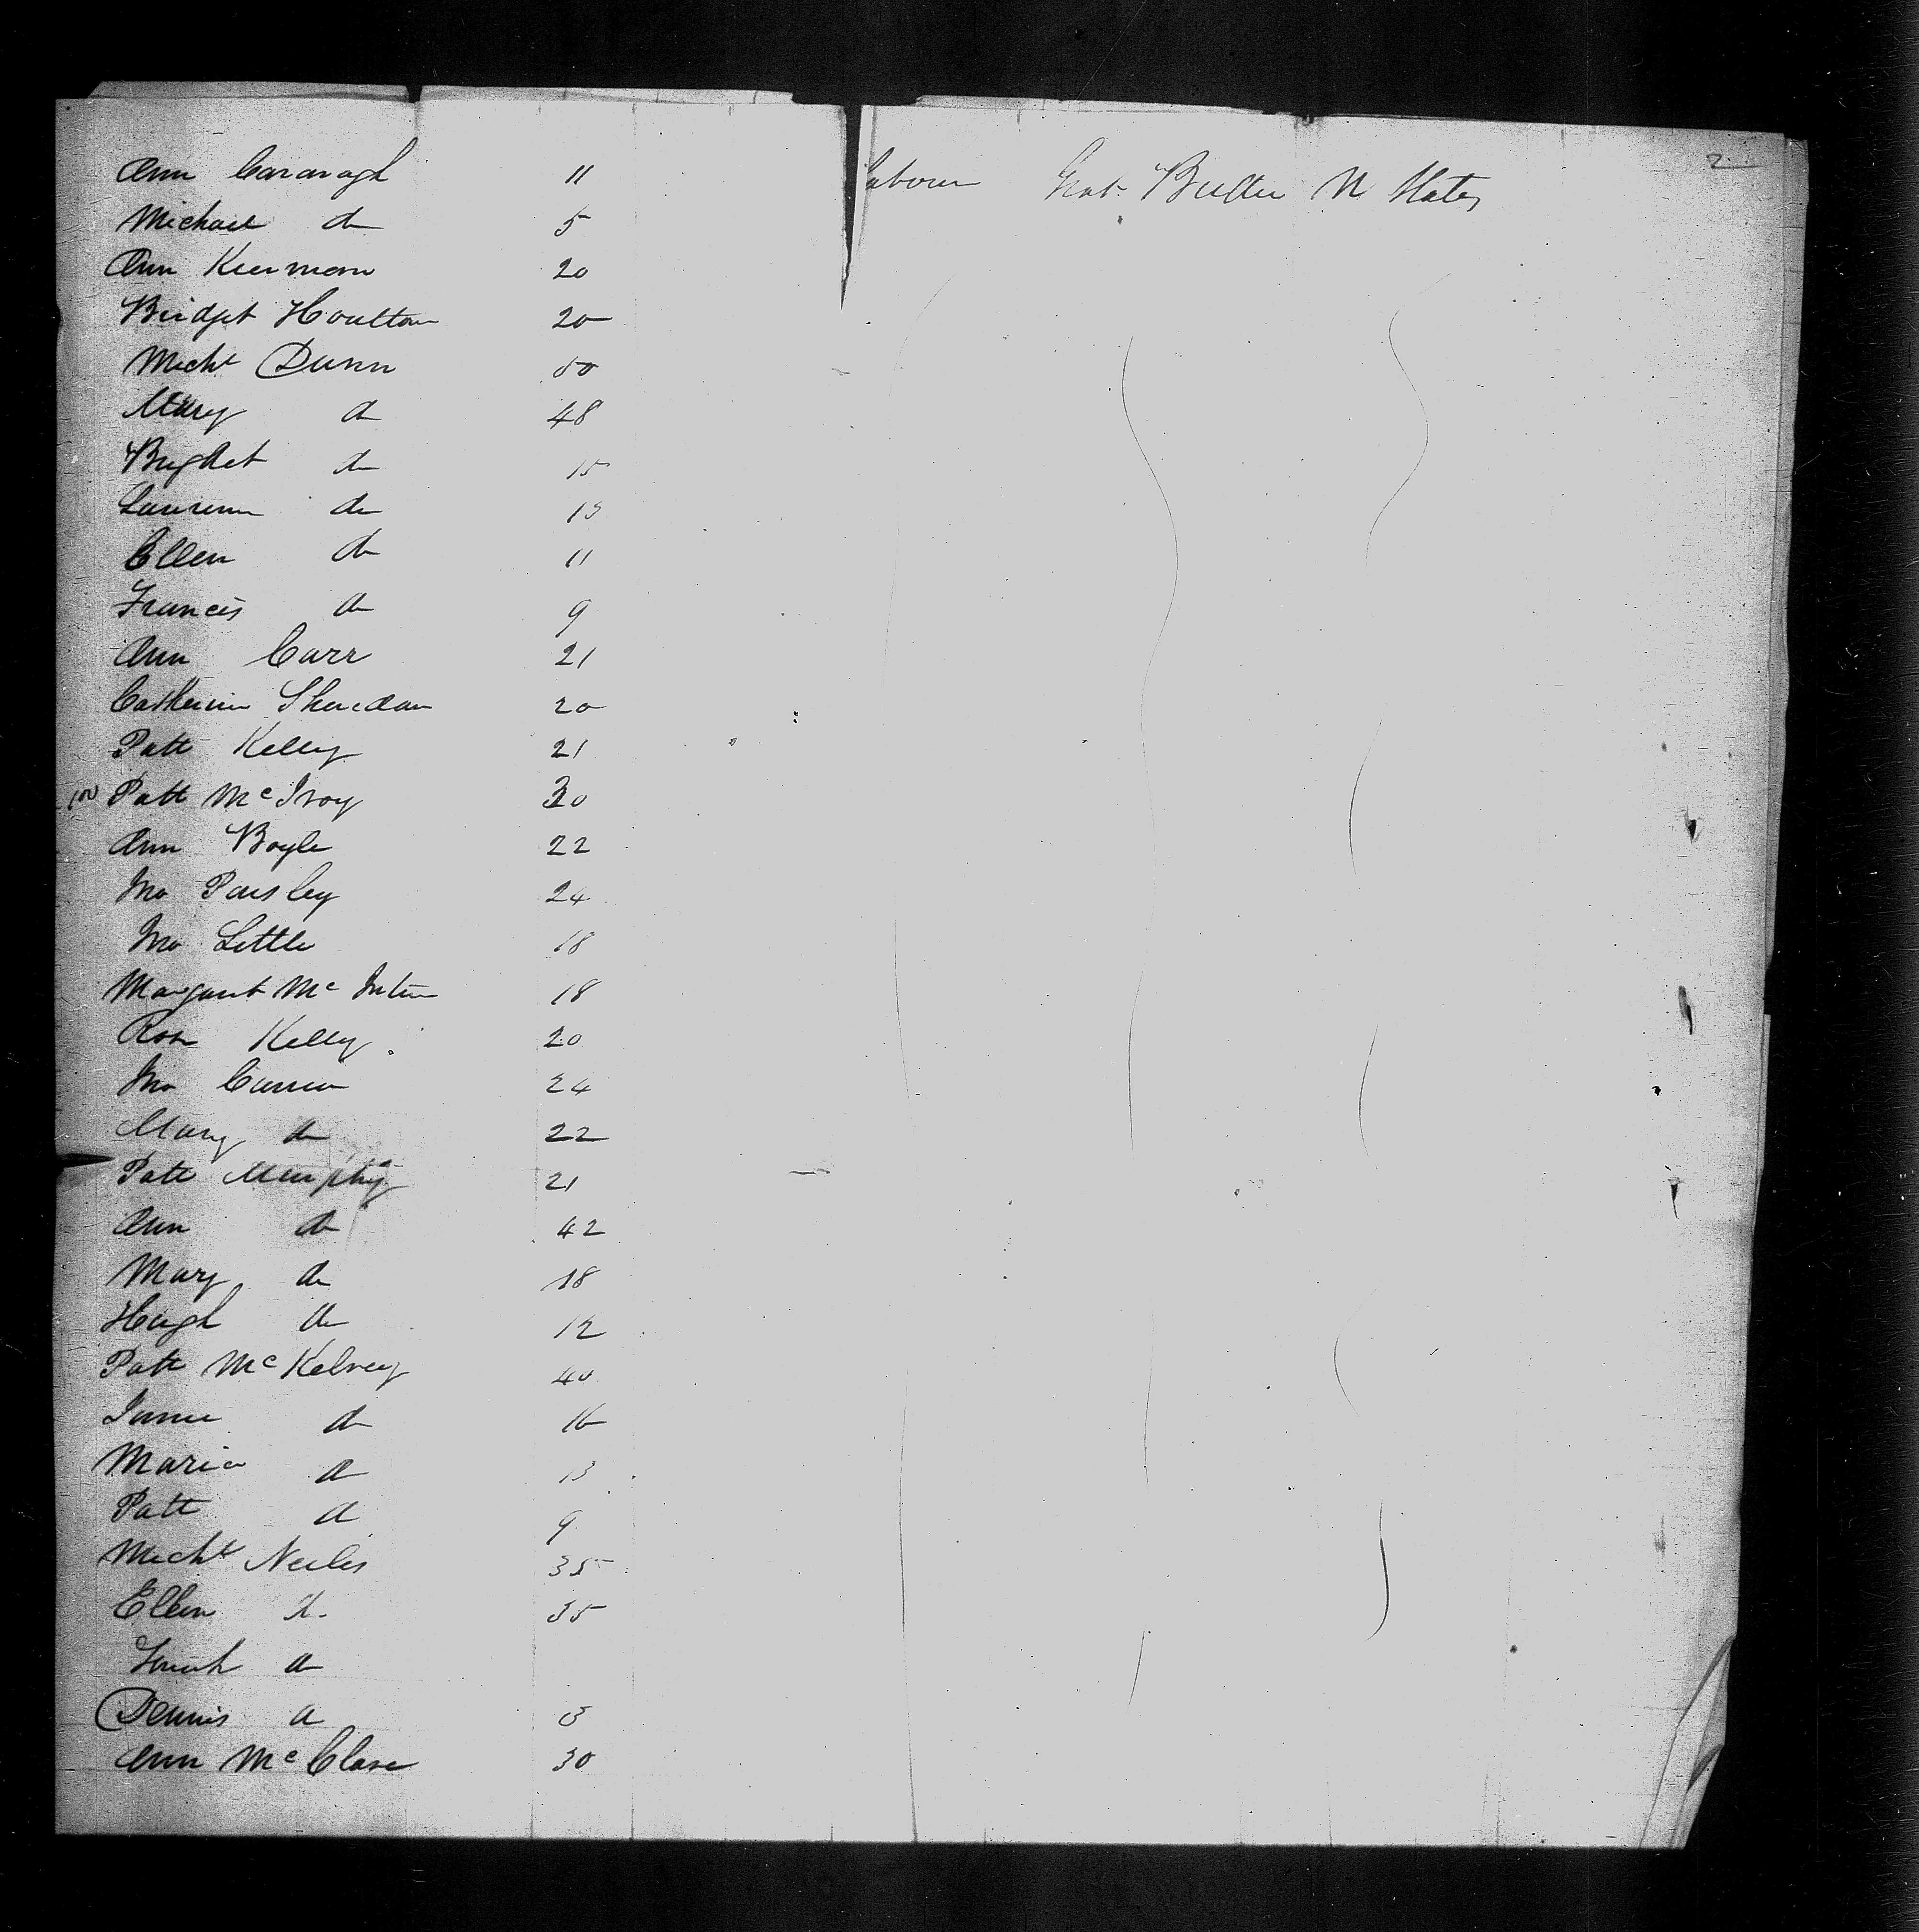 2
Ann Cavanagh 11 Labourer Great Britain U States
Michael do 5
Ann Kiernan 20
Bridget Houlton 20
Michl Dunn 50
Mary do 48
Bridget do 15
Laurence do 13
Ellen do 11
Francis do 9
Ann Carr 21
Catherine Sheridan 20
Patt Kelly 21
100 Patt McIvoy 30
Ann Boyle 22
Jno Paisley 24
Jno Little 18
Margaret McIntire 18
Rose Kelly 20
Jno Curren 24
Mary do 22
Patt Murphy 21
Ann do 42
Mary do 18
Hugh do 12
Patt McKelvey 40
James do 16
Maria do 13
Patt do 9
Michl Neiles 35
Ellen do 35
do
Dennis do 3
Ann McClave 30